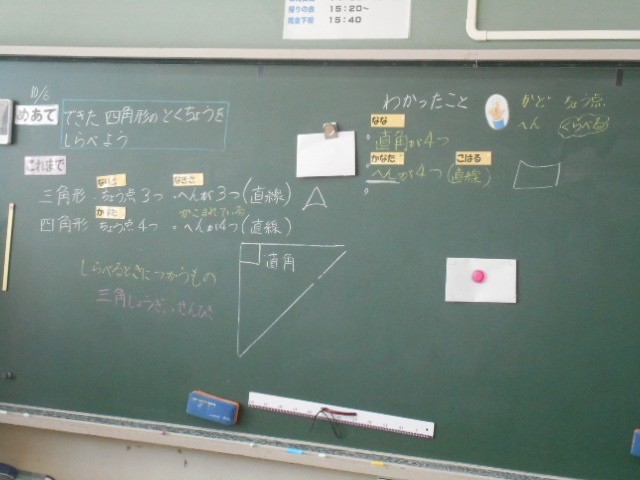 帰りの会 15:20~
完全下校 15:40
10/6
めあて
できた四角形のとくちょうを
しらべよう
これまで
三角形・ちょう点3つ・へんが3つ(直線)
かこまれている
四角形 ちょう点4つ・へんが4つ(直線)
しらべるときにつかうもの
三角じょうぎ・せんびき
直角
わかったこと
なな
直角が4つ
かなた こはる
へんが4つ(直線)
かど ちょう点
へん くらべる